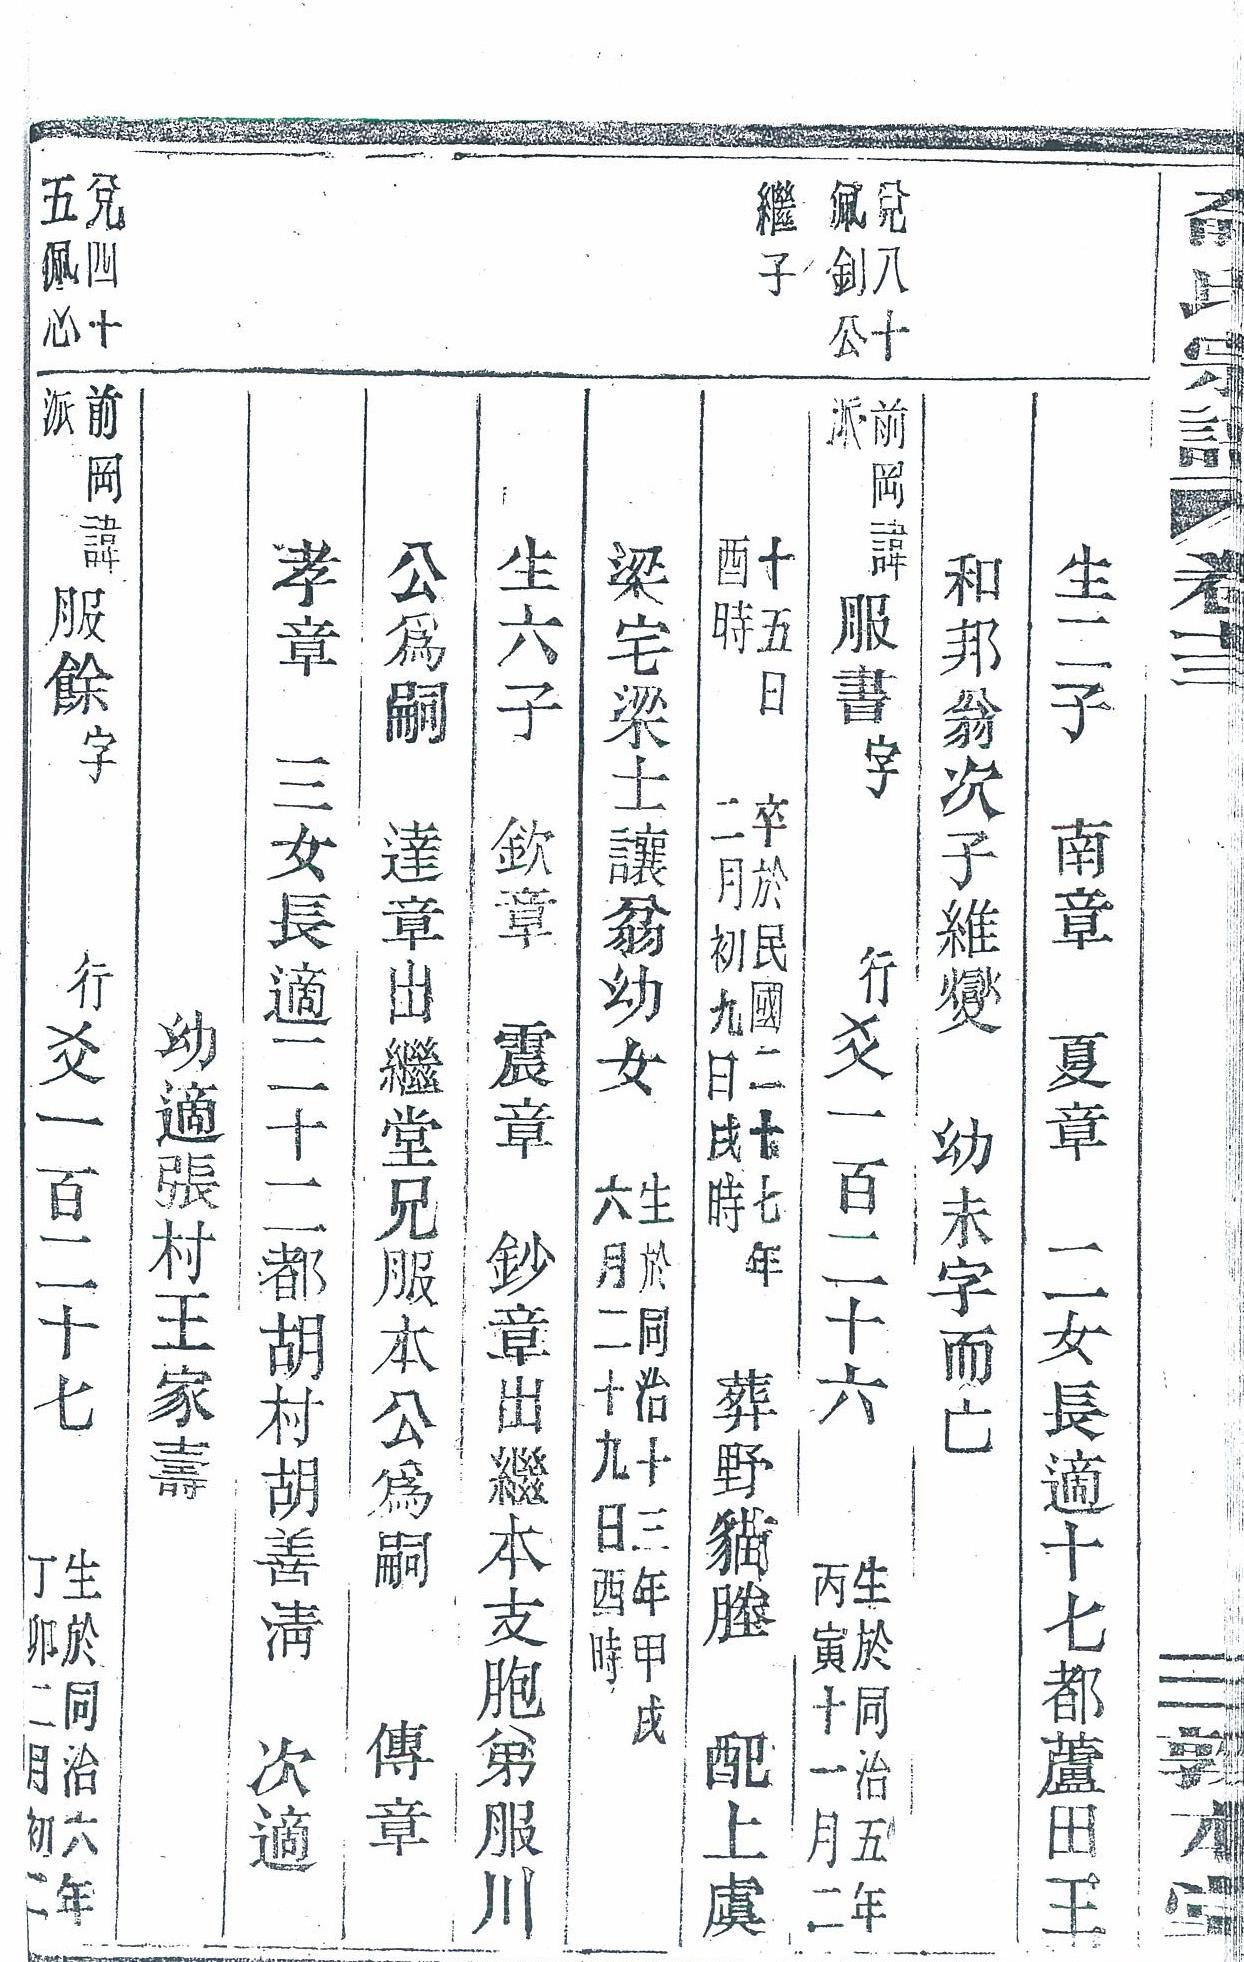 氏宗譜 卷十三
三 敦本堂
生二子 南章 夏章 二女長適十七都蘆田王
和邦翁次子維燮 幼未字而亡
兌八十
佩釗公
繼子
前岡諱
派
服書字 行爻一百二十六
生於同治五年
丙寅十一月二
十五日
酉時
卒於民國二十七年
二月初九日戌時
葬野貓塍 配上虞
梁宅梁士讓翁幼女
生於同治十三年甲戌
六月二十九日酉時
生六子 欽章 震章 鈔章出繼本支胞弟服川
公爲嗣 達章出繼堂兄服本公爲嗣 傳章
孝章 三女長適二十二都胡村胡善淸 次適
幼適張村王家壽
兌四十
五佩心
前岡諱
派
服餘字 行爻一百二十七
生於同治六年
丁卯二月初二